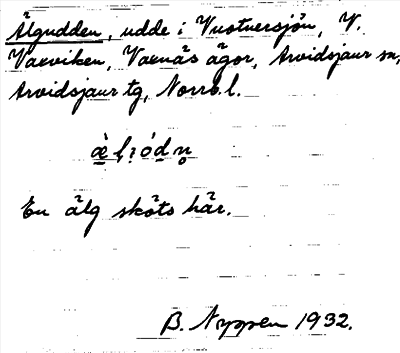 Älgudden, udde i Vuotnersjön, V.
Varviken, Varnäs ägor, Arvidsjaur sn,
Arvidsjaur tg, Norrb. l.
En älg sköts här.
B. Nyppen 1932.